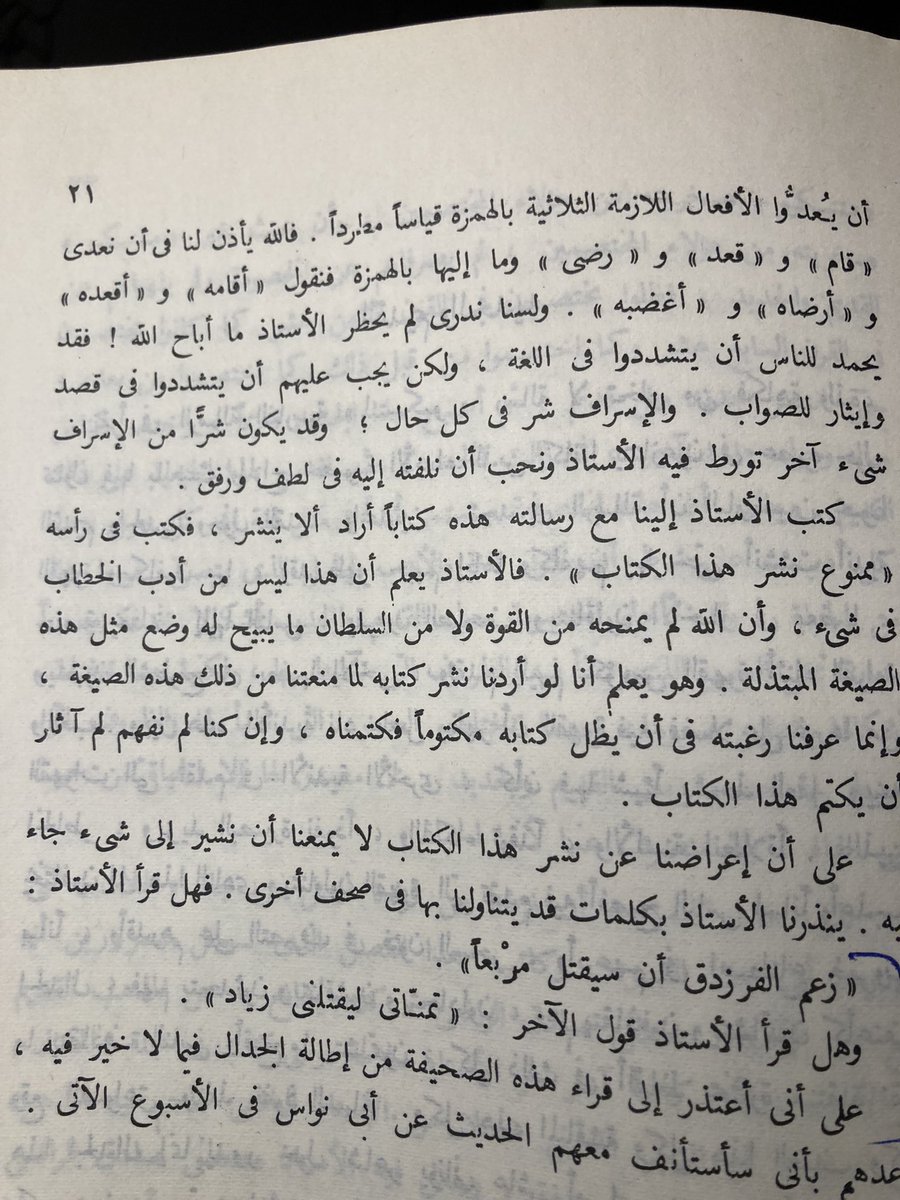 ٢١
أن يُعدُّوا الأفعال اللازمة الثلاثية بالهمزة قياساً مطرداً . فالله يأذن لنا فى أن نعدى
« قام » و « قعد » و « رضى » وما إليها بالهمزة فنقول « أقامه » و « أقعده »
و « أرضاه » و « أغضبه » . ولسنا ندرى لم يحظر الأستاذ ما أباح الله ! فقد
يحمد للناس أن يتشددوا فى اللغة ، ولكن يجب عليهم أن يتشددوا فى قصد
وإيثار للصواب . والإسراف شر فى كل حال ؛ وقد يكون شرًّا من الإسراف
شىء آخر تورط فيه الأستاذ ونحب أن نلفته إليه فى لطف ورفق .
كتب الأستاذ إلينا مع رسالته هذه كتاباً أراد ألا ينشر ، فكتب فى رأسه
« ممنوع نشر هذا الكتاب » . فالأستاذ يعلم أن هذا ليس من أدب الخطاب
فى شىء ، وأن الله لم يمنحه من القوة ولا من السلطان ما يبيح له وضع مثل هذه
الصيغة المبتذلة . وهو يعلم أنا لو أردنا نشر كتابه لما منعتنا من ذلك هذه الصيغة ،
وإنما عرفنا رغبته فى أن يظل كتابه مكتوماً فكتمناه ، وإن كنا لم نفهم لم آثار
أن يكتم هذا الكتاب .
على أن إعراضنا عن نشر هذا الكتاب لا يمنعنا أن نشير إلى شىء جاء
يه . ينذرنا الأستاذ بكلمات قد يتناولنا بها فى صحف أخرى . فهل قرأ الأستاذ :
« زعم الفرزدق أن سيقتل مرْبعاً » .
وهل قرأ الأستاذ قول الآخر : « تمنّانى ليقتلنى زياد » .
على أنى أعتذر إلى قراء هذه الصحيفة من إطالة الجدال فيما لا خير فيه ،
عدهم بأنى سأستأنف معهم الحديث عن أبى نواس فى الأسبوع الآتى .